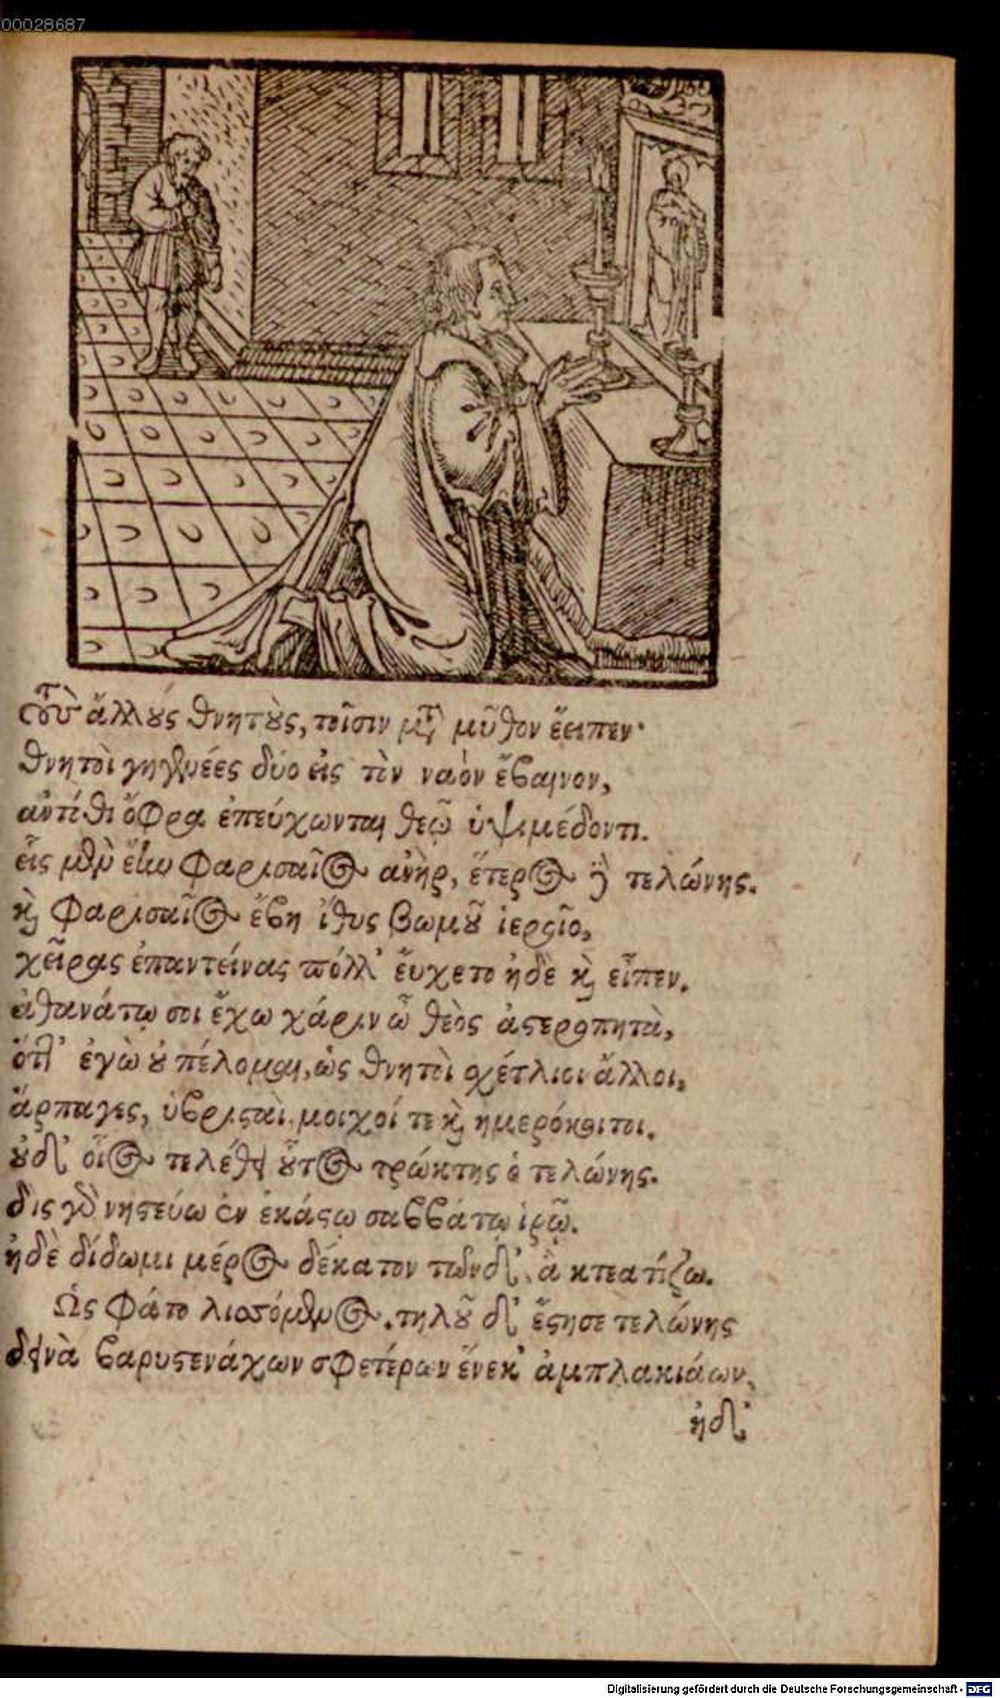 00028687
τοὺς ἄλλους θνητοὺς, τοῖσιν μετὰ μῦθον ἔειπεν·
θνητοὶ γηθαλέες δύο εἰς τὸν ναὸν ἔβαινον,
αὐτόθι ὄφρα ἐπεύχωνται θεῷ ὑψιμέδοντι.
εἷς μὲν ἔην Φαρισαῖος ἀνὴρ, ἕτερος δὲ τελώνης.
καὶ Φαρισαῖος ἔβη ἰθὺς βωμοῦ ἱεροῖο,
χεῖρας ἐπαντείνας πόλλ' εὔχετο ἠδὲ καὶ εἶπεν.
ἀθανάτῳ σοι ἔχω χάριν ὦ θεὸς ἀστεροπητὰ,
ὅττι ἐγὼ οὐ πέλομαι, ὡς θνητοὶ σχέτλιοι ἄλλοι,
ἅρπαγες, ὑβρισταὶ, μοιχοί τε καὶ ἡμερόκοιτοι.
οὐδ' οἷος τελέθει οὗτος τρώκτης ὁ τελώνης.
δὶς γὰρ νηστεύω ἐν ἑκάστῳ σαββάτῳ ἱρῷ.
ἠδὲ δίδωμι μέρος δέκατον τῶνδ', ἃ κτεατίζω.
Ὣς φάτο λισσόμενος. τηλοῦ δ' ἔστησε τελώνης
δεινὰ βαρυστενάχων σφετέρων ἕνεκ' ἀμπλακιάων,
ἠδ'
Digitalisierung gefördert durch die Deutsche Forschungsgemeinschaft - DFG